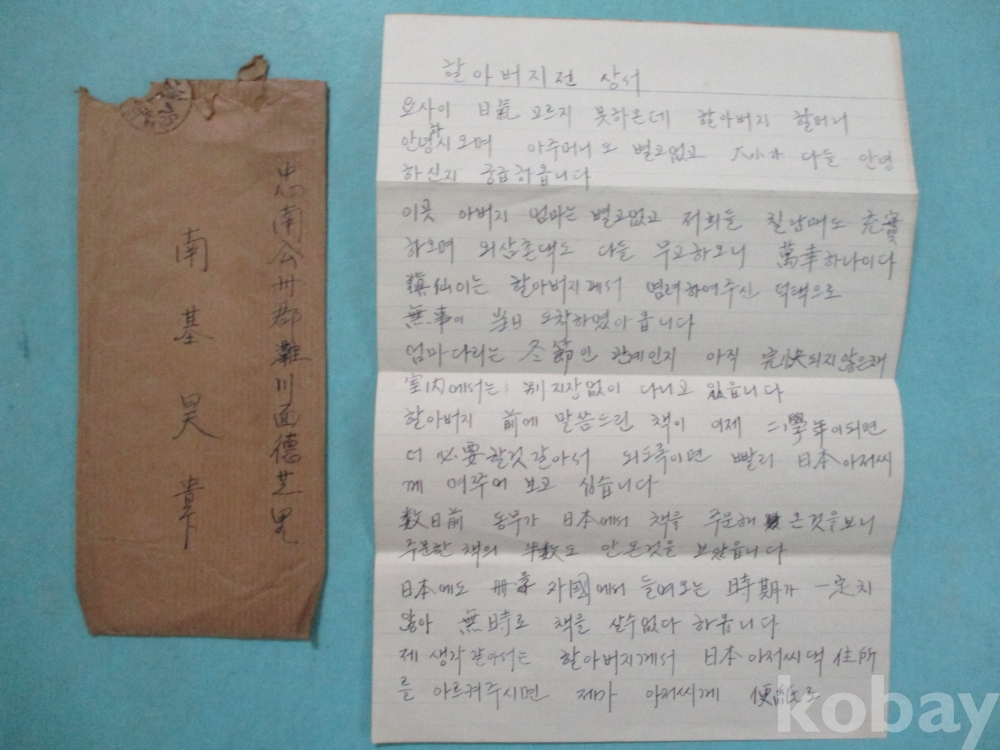 忠南公州郡灘川面德芝里
南基昊
할아버지전 상서
요사이 日氣 고르지 못하온데 할아버지 할머니
안녕하시오며 아주머니도 별고없고 大小가 다들 안녕
하신지 궁금하옵니다
이곳 아버지 엄마는 별고없고 저희들 칠남매도 充實
하오며 외삼촌댁도 다들 무고하오니 萬幸하나이다
仙이는 할아버지께서 념려하여주신 덕택으로
無事이 当日 도착하였아옵니다
엄마다리는 冬節인 관계인지 아직 完快되지않은채
室內에서는 別 지장없이 다니고 있읍니다
할아버지 前에 말씀드린 책이 이제 二學年이되면
더 必要할것 같아서 되도록이면 빨리 日本아저씨
께 여쭈어 보고 십습니다
数日前 동무가 日本에서 책을 주문해 온것을보니
주문한 책의 半数도 안온것을 보았읍니다
日本에도 外國에서 들어오는 時期가 一定치
않아 無時로 책을 살수없다 하옵니다
제 생각같아서는 할아버지께서 日本아저씨댁 住所
를 아르켜주시면 제가 아저씨께 便紙로
kobay